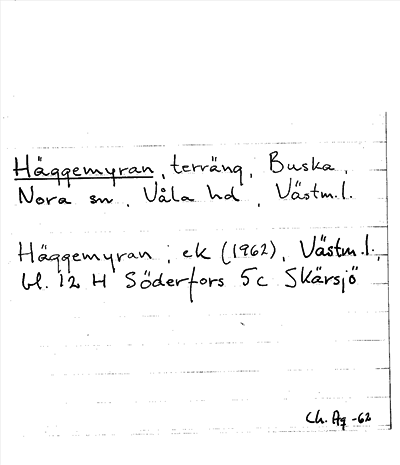 Häggemyran, terräng, Buska,
Nora sn, Våla hd, Västm.l.
Häggemyran; ek (1962), Västm.l.,
bl. 12 H Söderfors 5c Skärsjö
Ch. Ag -62